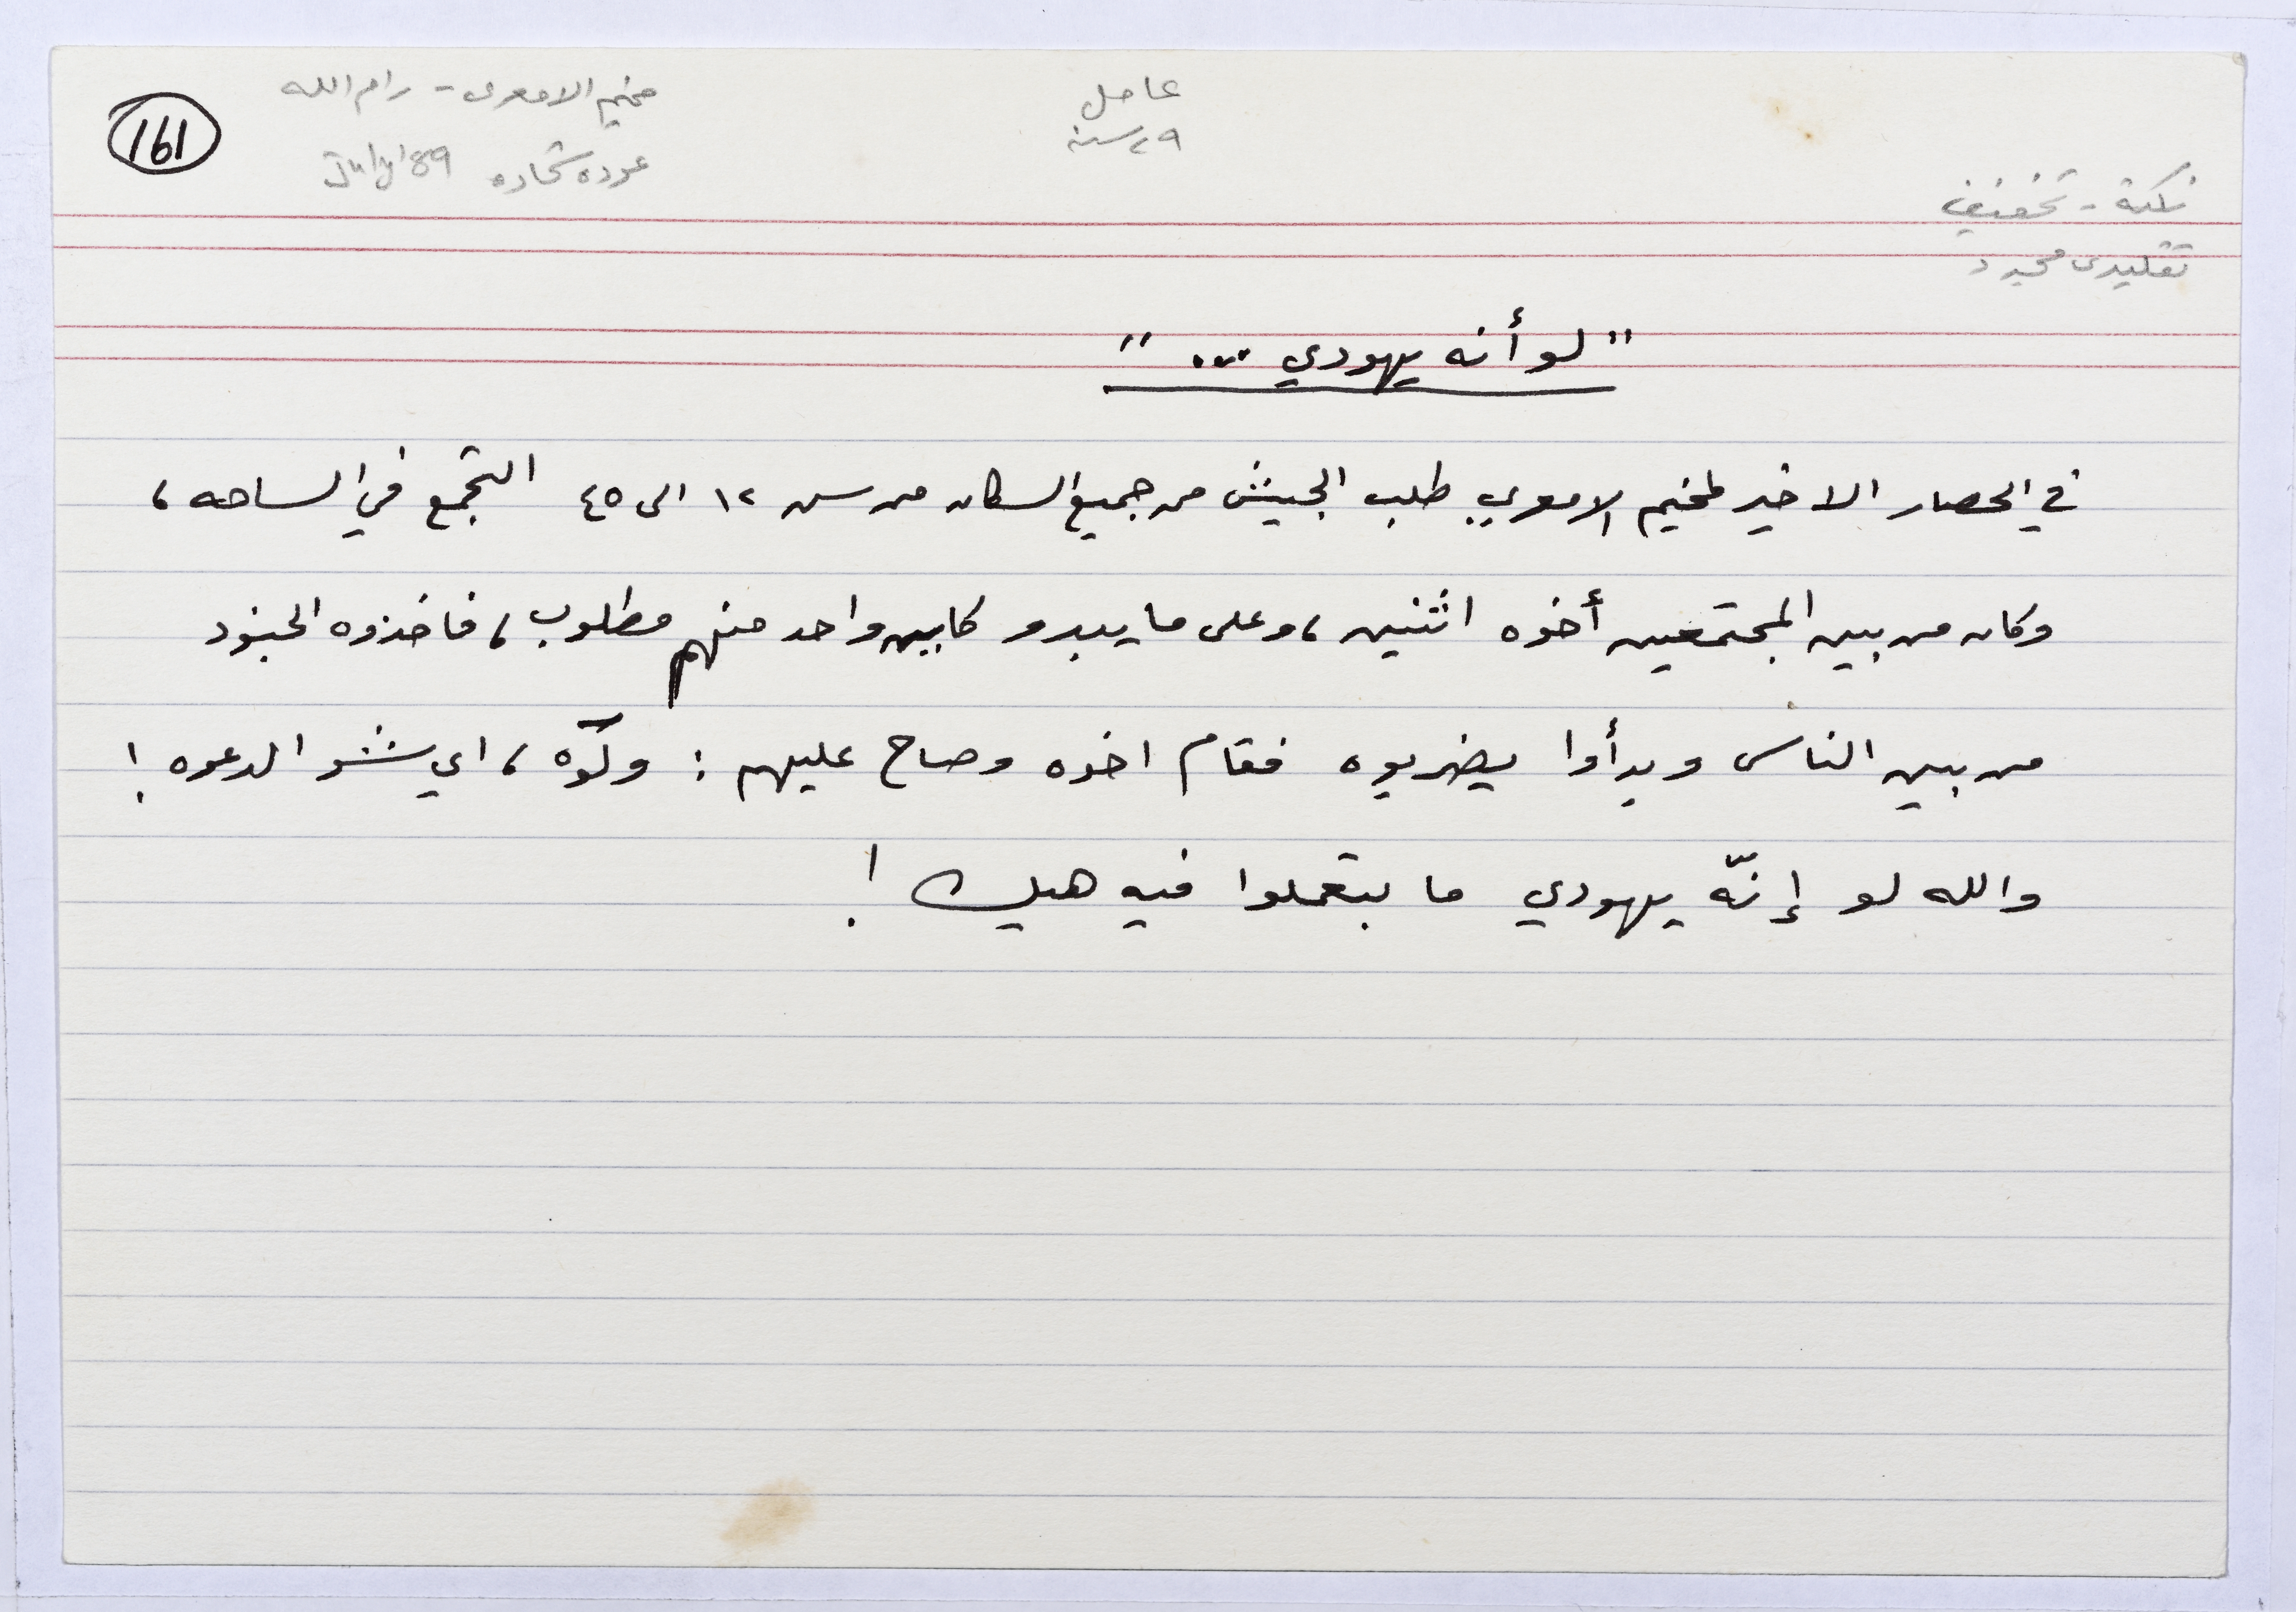 مخيم الامعري - رام الله
عوده شحاده July '89
161
عامل
٢٩ سنه
نكتة - تخفيف
تقليدي مجرد
"لو أنه يهودي ..."
في الحصار الاخير لمخيم الامعري طلب الجيش من جميع السكان من سن ١٢ الى ٤٥ التجمع في الساحه،
وكان من بين المجتمعين أخوه اثنين، وعلى ما يبدو كاين واحد منهم مطلوب، فاخذوه الجنود
من بين الناس وبدأوا يضربوه فقام اخوه وصاح عليهم : ولَوّه، اي شو الدعوه !
والله لو إنّه يهودي ما بتعملوا فيه هيك !